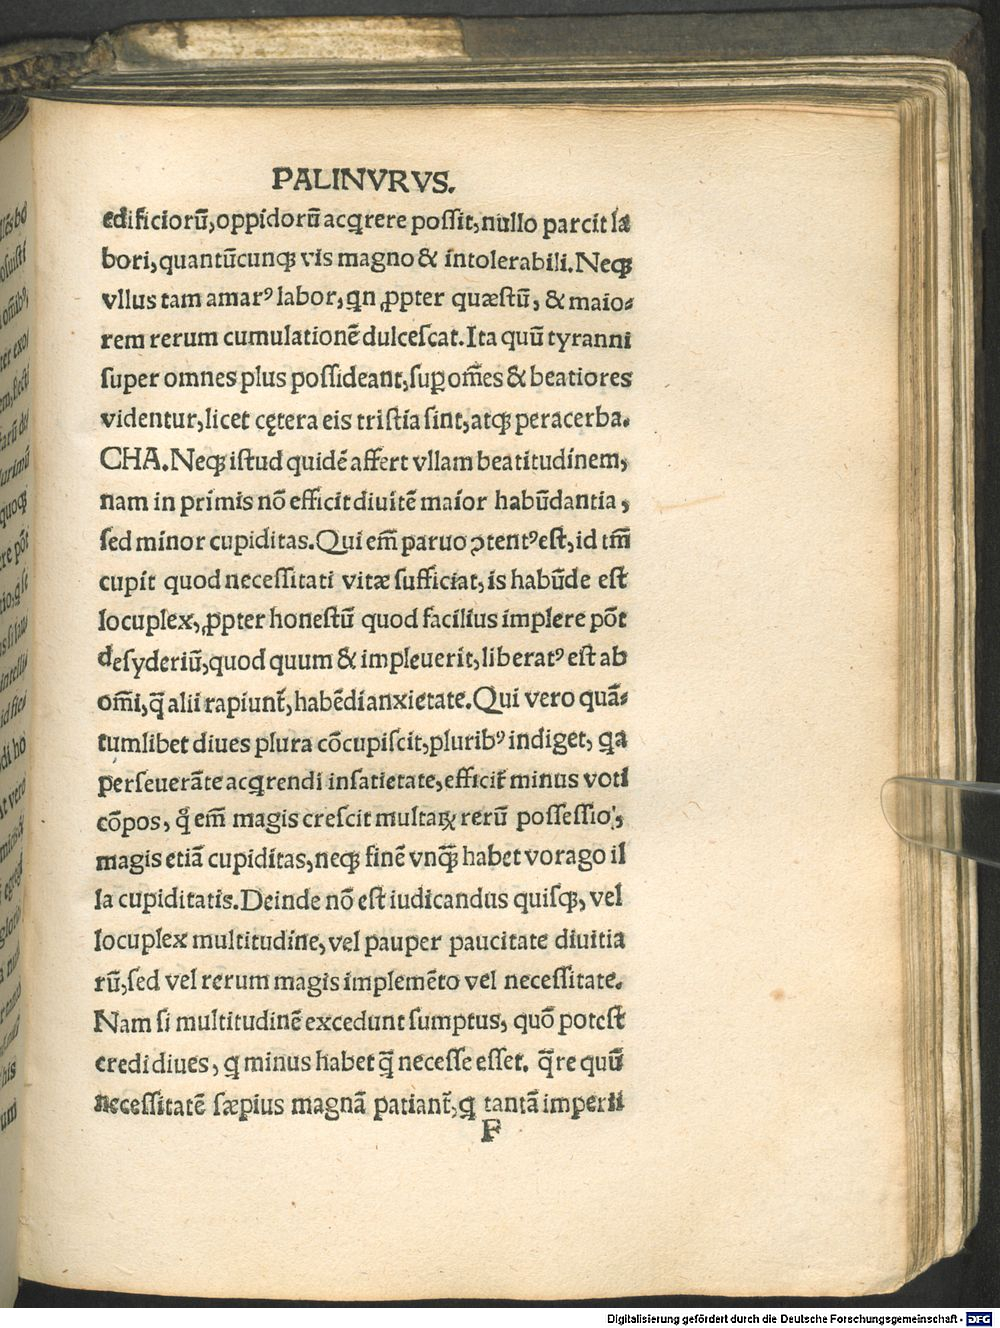 PALINVRVS.
edificiorū, oppidorū acq̇rere possit, nullo parcit la
bori, quantūcunqꝫ vis magno & intolerabili. Neqꝫ
vllus tam amarꝰ labor, qn ꝓpter quæstū, & maio-
rem rerum cumulationē dulcescat. Ita quū tyranni
super omnes plus possideant, suꝑ om̄es & beatiores
videntur, licet cętera eis tristia sint, atqꝫ peracerba.
CHA. Neqꝫ istud quidē affert vllam beatitudinem,
nam in primis nō efficit diuitē maior habūdantia,
sed minor cupiditas. Qui em̄ paruo ꝯtentꝰ est, id tm̄
cupit quod necessitati vitæ sufficiat, is habūde est
locuplex, ꝓpter honestū quod facilius implere pōt
desyderiū, quod quum & impleuerit, liberatꝰ est ab
om̄i, q̄ alii rapiunt̄, habēdi anxietate. Qui vero quā-
tumlibet diues plura cōcupiscit, pluribꝰ indiget, qa
perseuerāte acq̇rendi insatietate, efficit̄ minus voti
cōpos, q̊ em̄ magis crescit multaꝝ rerū possessio,
magis etiā cupiditas, neqꝫ finē vnq̄ꝫ habet vorago il
la cupiditatis. Deinde nō est iudicandus quisqꝫ, vel
locuplex multitudine, vel pauper paucitate diuitia
rū, sed vel rerum magis implemēto vel necessitate.
Nam si multitudinē excedunt sumptus, quō potest
credi diues, q minus habet q̄ necesse esset. q̄re quū
necessitatē sæpius magnā patiant̄, q tantā imperii
F
Digitalisierung gefördert durch die Deutsche Forschungsgemeinschaft - DFG